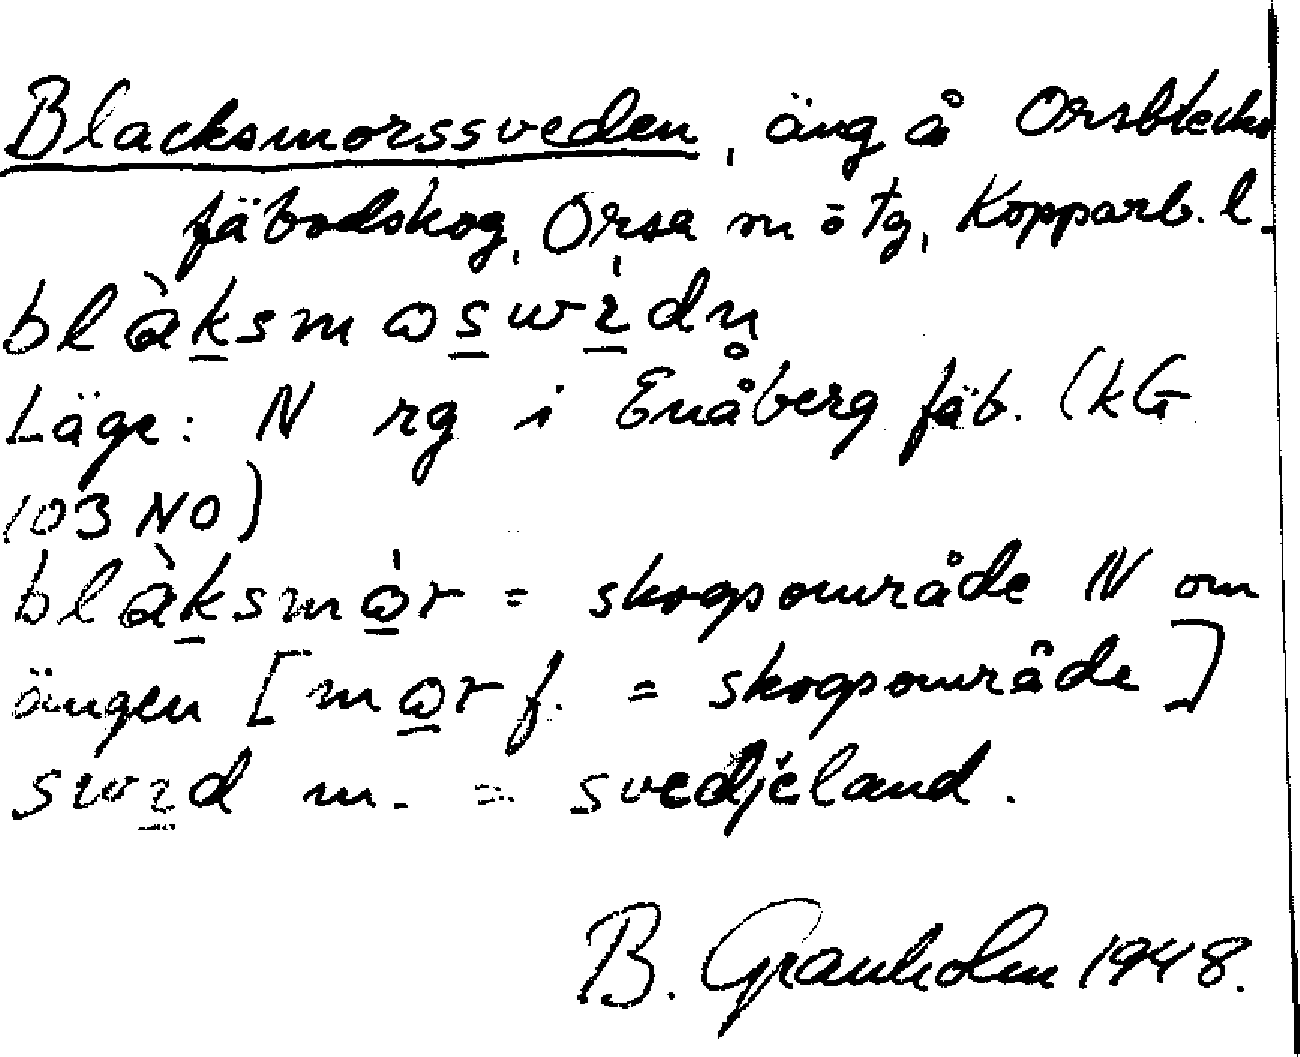 Blacksmorssveden, äng å Orsblecks
fäbodskog, Orsa m ö tg, Kopparb. l.
blàksmaswı̍dn̥
Läge: N rg i Enåberg fäb. (kG
103 NO)
blàksma̍r = skogsområde N om
ängen [mar f. = skogsområde]
swıd m. = svedjeland.
B. Granholm 1948.